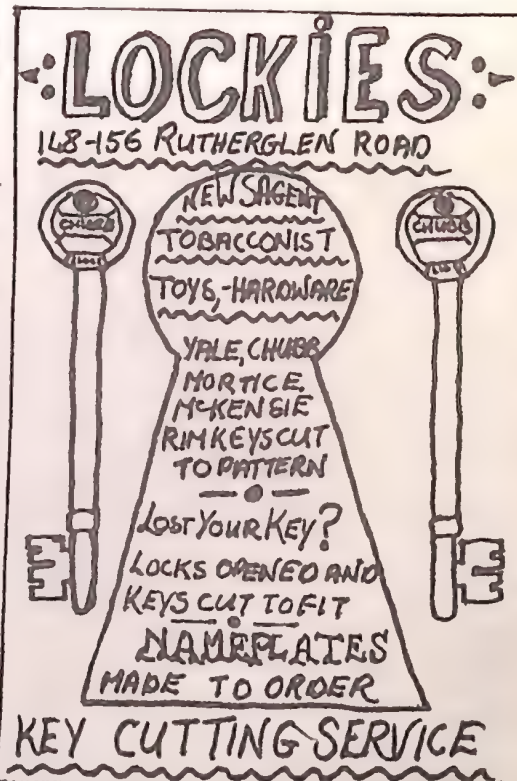 LOCKIES
148-156 RUTHERGLEN ROAD
CHUBB
CHUBB
NEWSAGENT
TOBACCONIST
TOYS,-HARDWARE
YALE, CHUBB
MORTICE
McKENSIE
RIM KEYS CUT
TO PATTERN
LOST YOUR KEY?
LOCKS OPENED AND
KEYS CUT TO FIT
NAMEPLATES
MADE TO ORDER
KEY CUTTING SERVICE